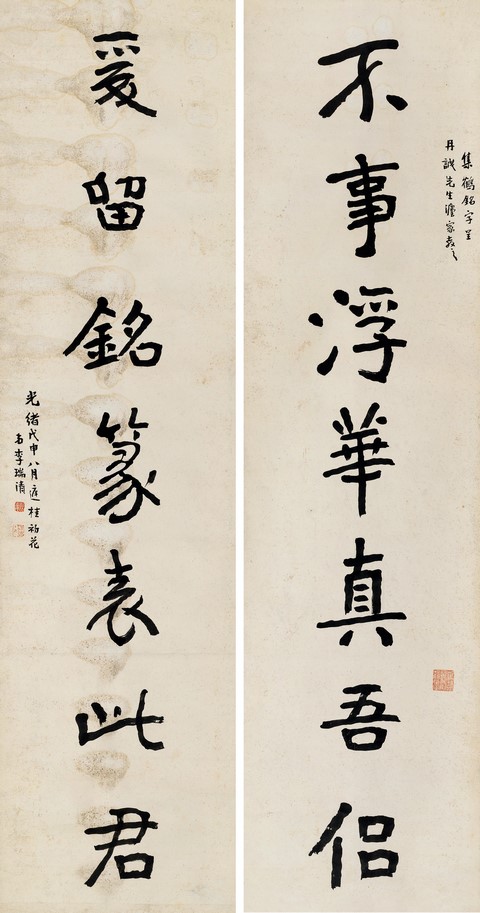 集鶴銘字呈
丹誠先生灋家教之
不事浮華真吾侶
爰留銘篆表此君
光緒戊申八月庭桂初花
李瑞清